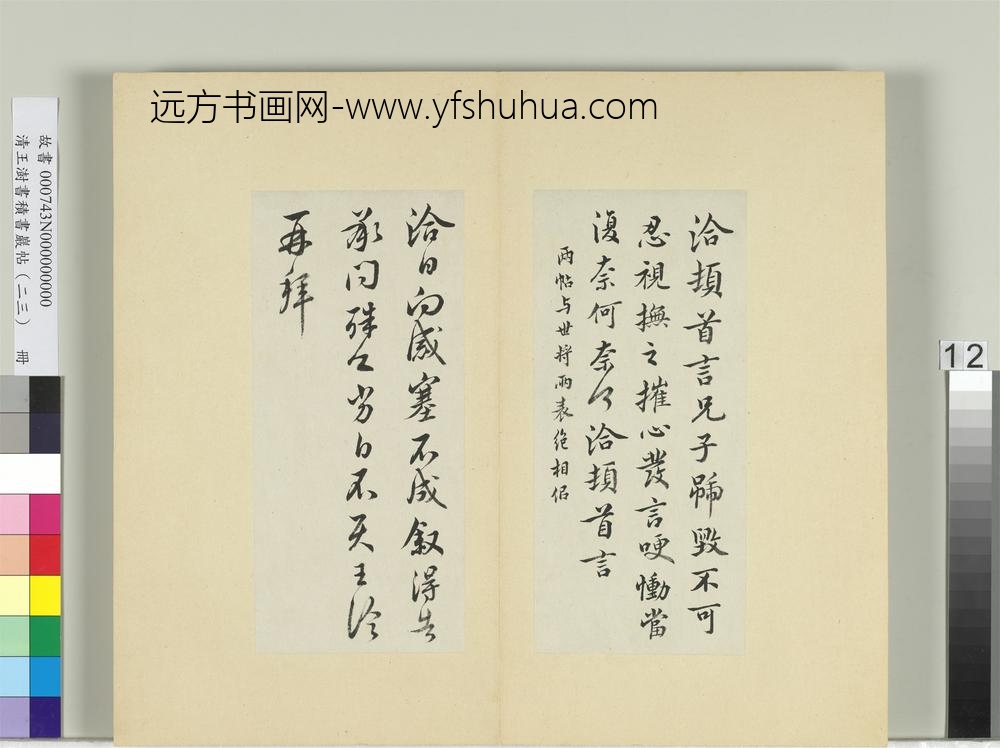 远方书画网-www.yfshuhua.com
洽頓首言兄子號毀不可
忍視撫之摧心發言哽慟當
復奈何奈何洽頓首言
兩帖与世將兩表绝相侣
洽白向感塞不成敘得告
承問殊
再拜
故書 000743N000000000
清王澍書積書巖帖(二三) 冊
12